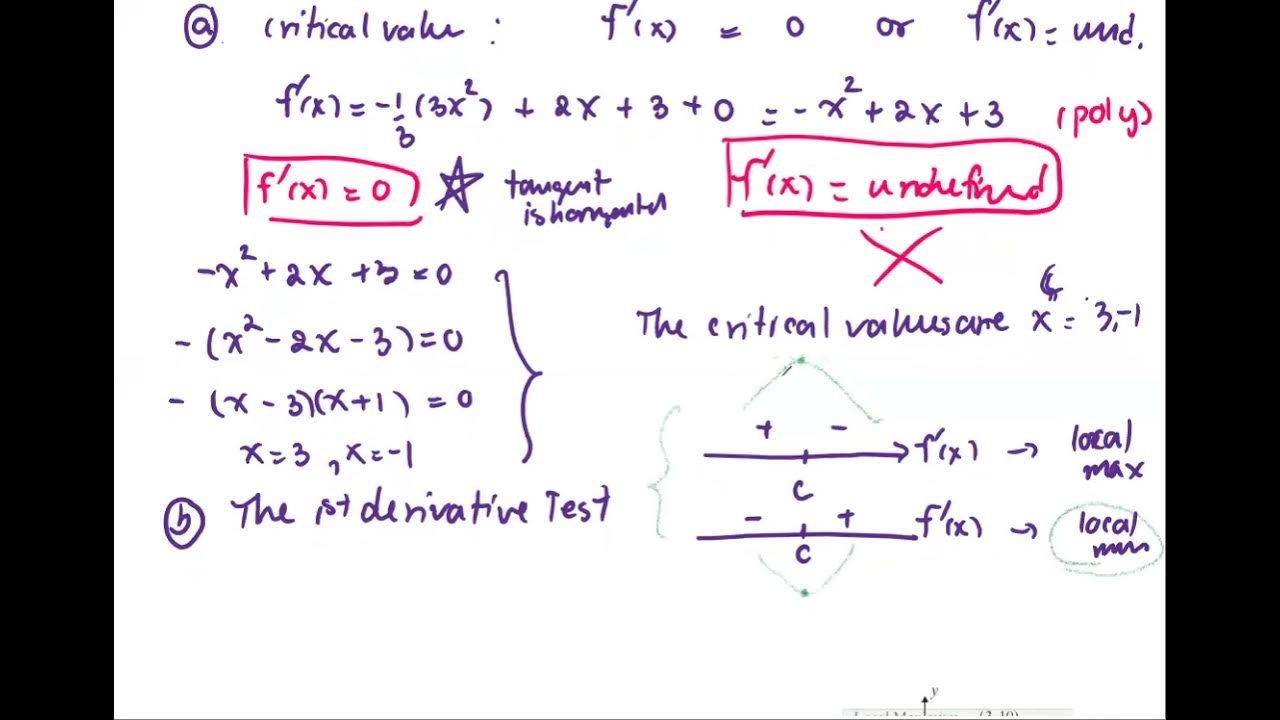 ⓐ critical value : f'(x) = 0 or f'(x) = und.
f'(x) = -1/3 (3x²) + 2x + 3 + 0 = -x² + 2x + 3 (poly)
f'(x) = 0 ☆ tangent
is horizontal
f'(x) = undefined
-x² + 2x + 3 = 0
-(x² - 2x - 3) = 0
-(x - 3)(x + 1) = 0
x = 3 , x = -1
The critical values are x = 3, -1
+ -
f'(x) → local
max
c
ⓑ The 1st derivative Test
- +
f'(x) → local
min
c
y